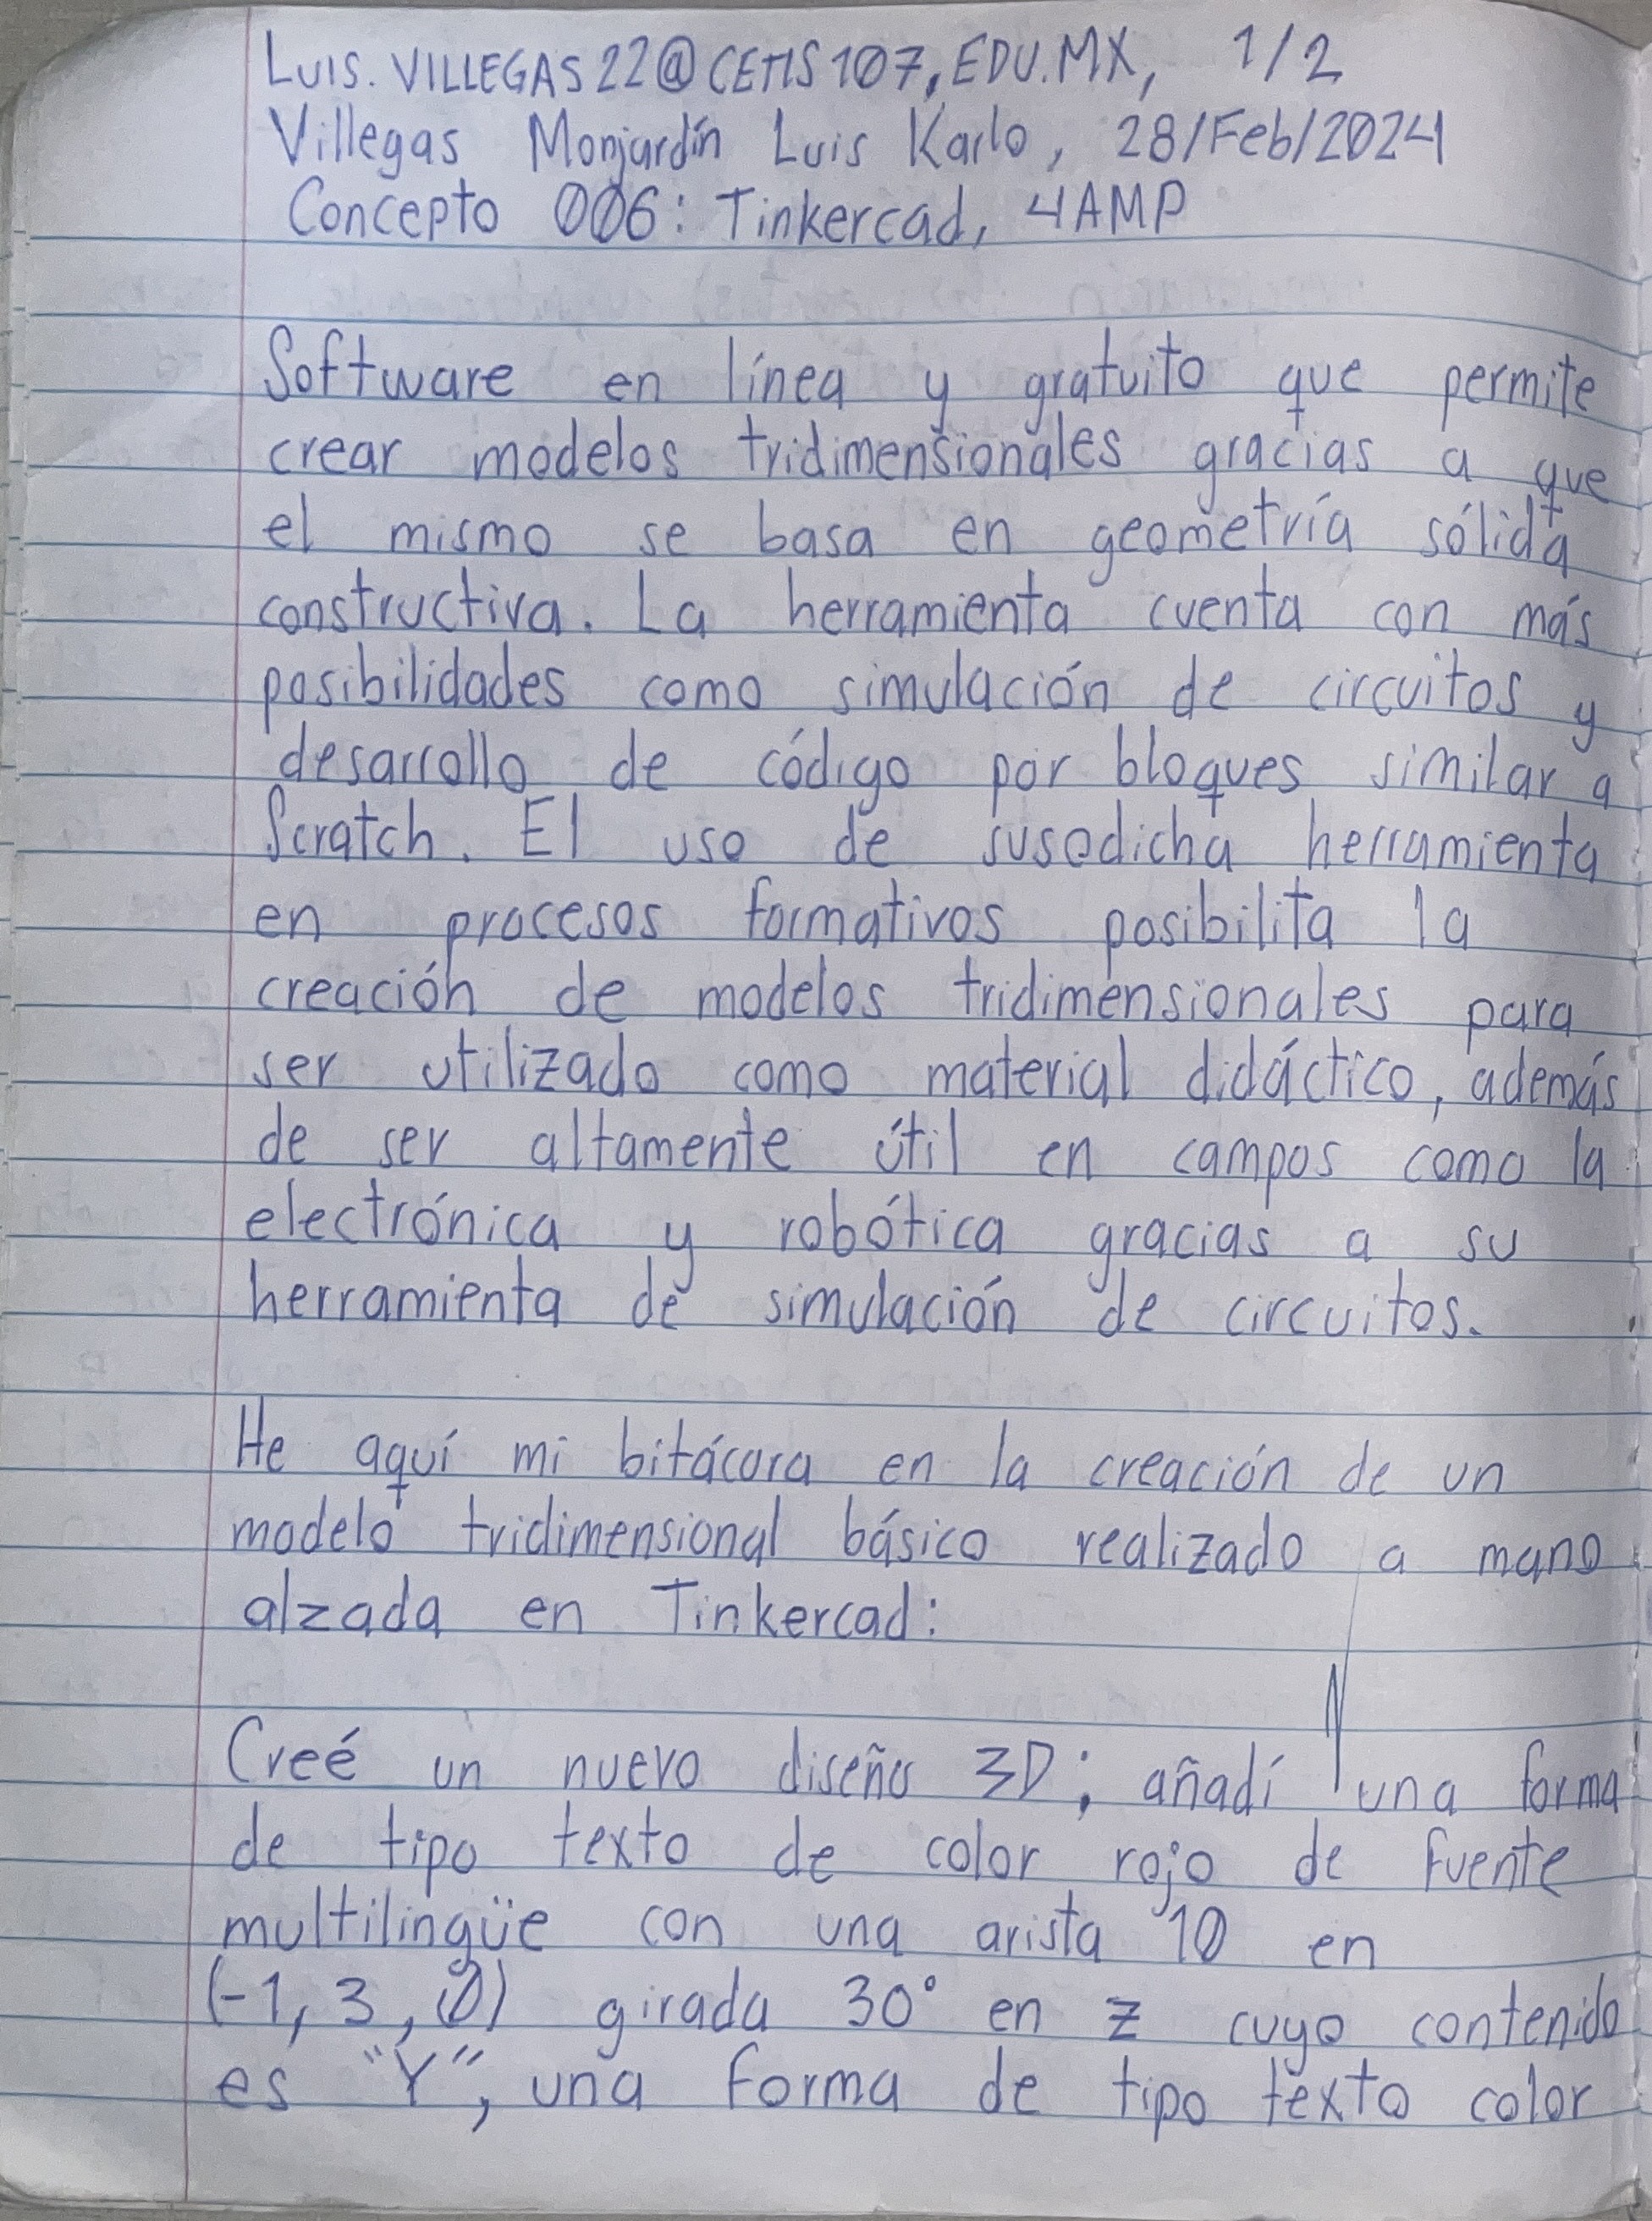 LUIS.VILLEGAS22@CETIS107.EDU.MX, 1/2
Villegas Monjardín Luis Karlo, 28/Feb/2024
Concepto 006: Tinkercad, 4AMP
Software en línea y gratuito que permite
crear modelos tridimensionales gracias a que
el mismo se basa en geometría sólida
constructiva. La herramienta cuenta con más
posibilidades como simulación de circuitos y
desarrollo de código por bloques similar a
Scratch. El uso de susodicha herramienta
en procesos formativos posibilita la
creación de modelos tridimensionales para
ser utilizado como material didáctico, además
de ser altamente útil en campos como la
electrónica y robótica gracias a su
herramienta de simulación de circuitos.
He aquí mi bitácora en la creación de un
modelo tridimensional básico realizado a mano
alzada en Tinkercad:
Creé un nuevo diseño 3D; añadí una forma
de tipo texto de color rojo de fuente
multilingüe con una arista 10 en
(-1, 3, 0) girada 30° en z cuyo contenido
es "Y", una forma de tipo texto color